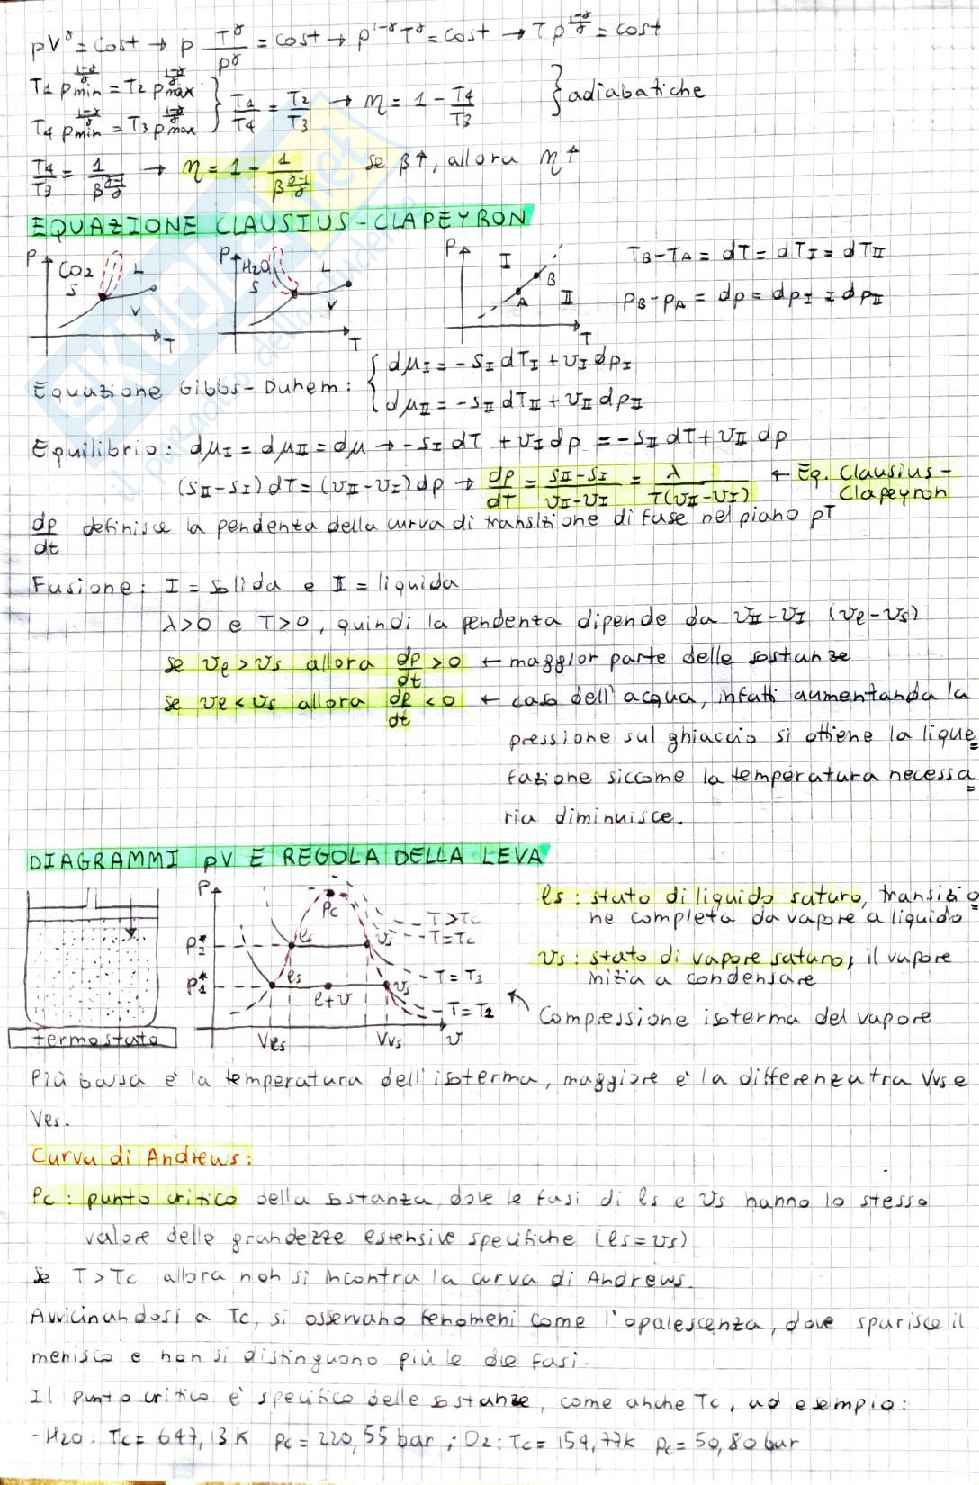 pV^γ = cost → p T^γ/p^γ = cost → p^(1-γ) T^γ = cost → T p^((1-γ)/γ) = cost
T1 pmin^((1-γ)/γ) = T2 pmax^((1-γ)/γ)
T4 pmin^((1-γ)/γ) = T3 pmax^((1-γ)/γ) } T1/T4 = T2/T3 → η = 1 - T4/T3 } adiabatiche
T4/T3 = 1/β^((γ-1)/γ) → η = 1 - 1/β^((γ-1)/γ) se β↑, allora η↑
EQUAZIONE CLAUSIUS-CLAPEYRON
P CO2 S L V T
P H2O S L V T
P I B A II T
TB-TA = dT = dTI = dTII
PB-PA = dp = dpI = dpII
Equazione Gibbs-Duhem: { dμI = -sI dTI + vI dpI
dμII = -sII dTII + vII dpII
Equilibrio: dμI = dμII = dμ → -sI dT + vI dp = -sII dT + vII dp
(sII-sI) dT = (vII-vI) dp → dp/dT = (sII-sI)/(vII-vI) = λ/(T(vII-vI)) ← Eq. Clausius-
Clapeyron
dp/dt definisce la pendenza della curva di transizione di fase nel piano pT
Fusione: I = solida e II = liquida
λ>0 e T>0, quindi la pendenza dipende da vII-vI (vℓ-vs)
se vℓ>vs allora dp/dt >0 ← maggior parte delle sostanze
se vℓ<vs allora dp/dt <0 ← caso dell'acqua, infatti aumentando la
pressione sul ghiaccio si ottiene la lique
fazione siccome la temperatura necessa
ria diminuisce.
DIAGRAMMI pV E REGOLA DELLA LEVA
P Pc T>Tc T=Tc
P2* ℓs vs T=T3
P1* ℓs ℓ+v vs T=T2
Vℓs Vvs v
termostato
ℓs: stato di liquido saturo, transizio
ne completa da vapore a liquido
vs: stato di vapore saturo, il vapore
inizia a condensare
Compressione isoterma del vapore
Più bassa è la temperatura dell'isoterma, maggiore è la differenza tra Vvs e
Vℓs.
Curva di Andrews:
Pc: punto critico della sostanza, dove le fasi di ℓs e vs hanno lo stesso
valore delle grandezze estensive specifiche (ℓs=vs)
Se T>Tc allora non si incontra la curva di Andrews.
Avvicinandosi a Tc, si osservano fenomeni come l'opalescenza, dove sparisce il
menisco e non si distinguono più le due fasi.
Il punto critico è specifico delle sostanze, come anche Tc, ad esempio:
-H2O: Tc= 647,13K pc=220,55 bar; O2: Tc= 154,77K pc=50,80 bar